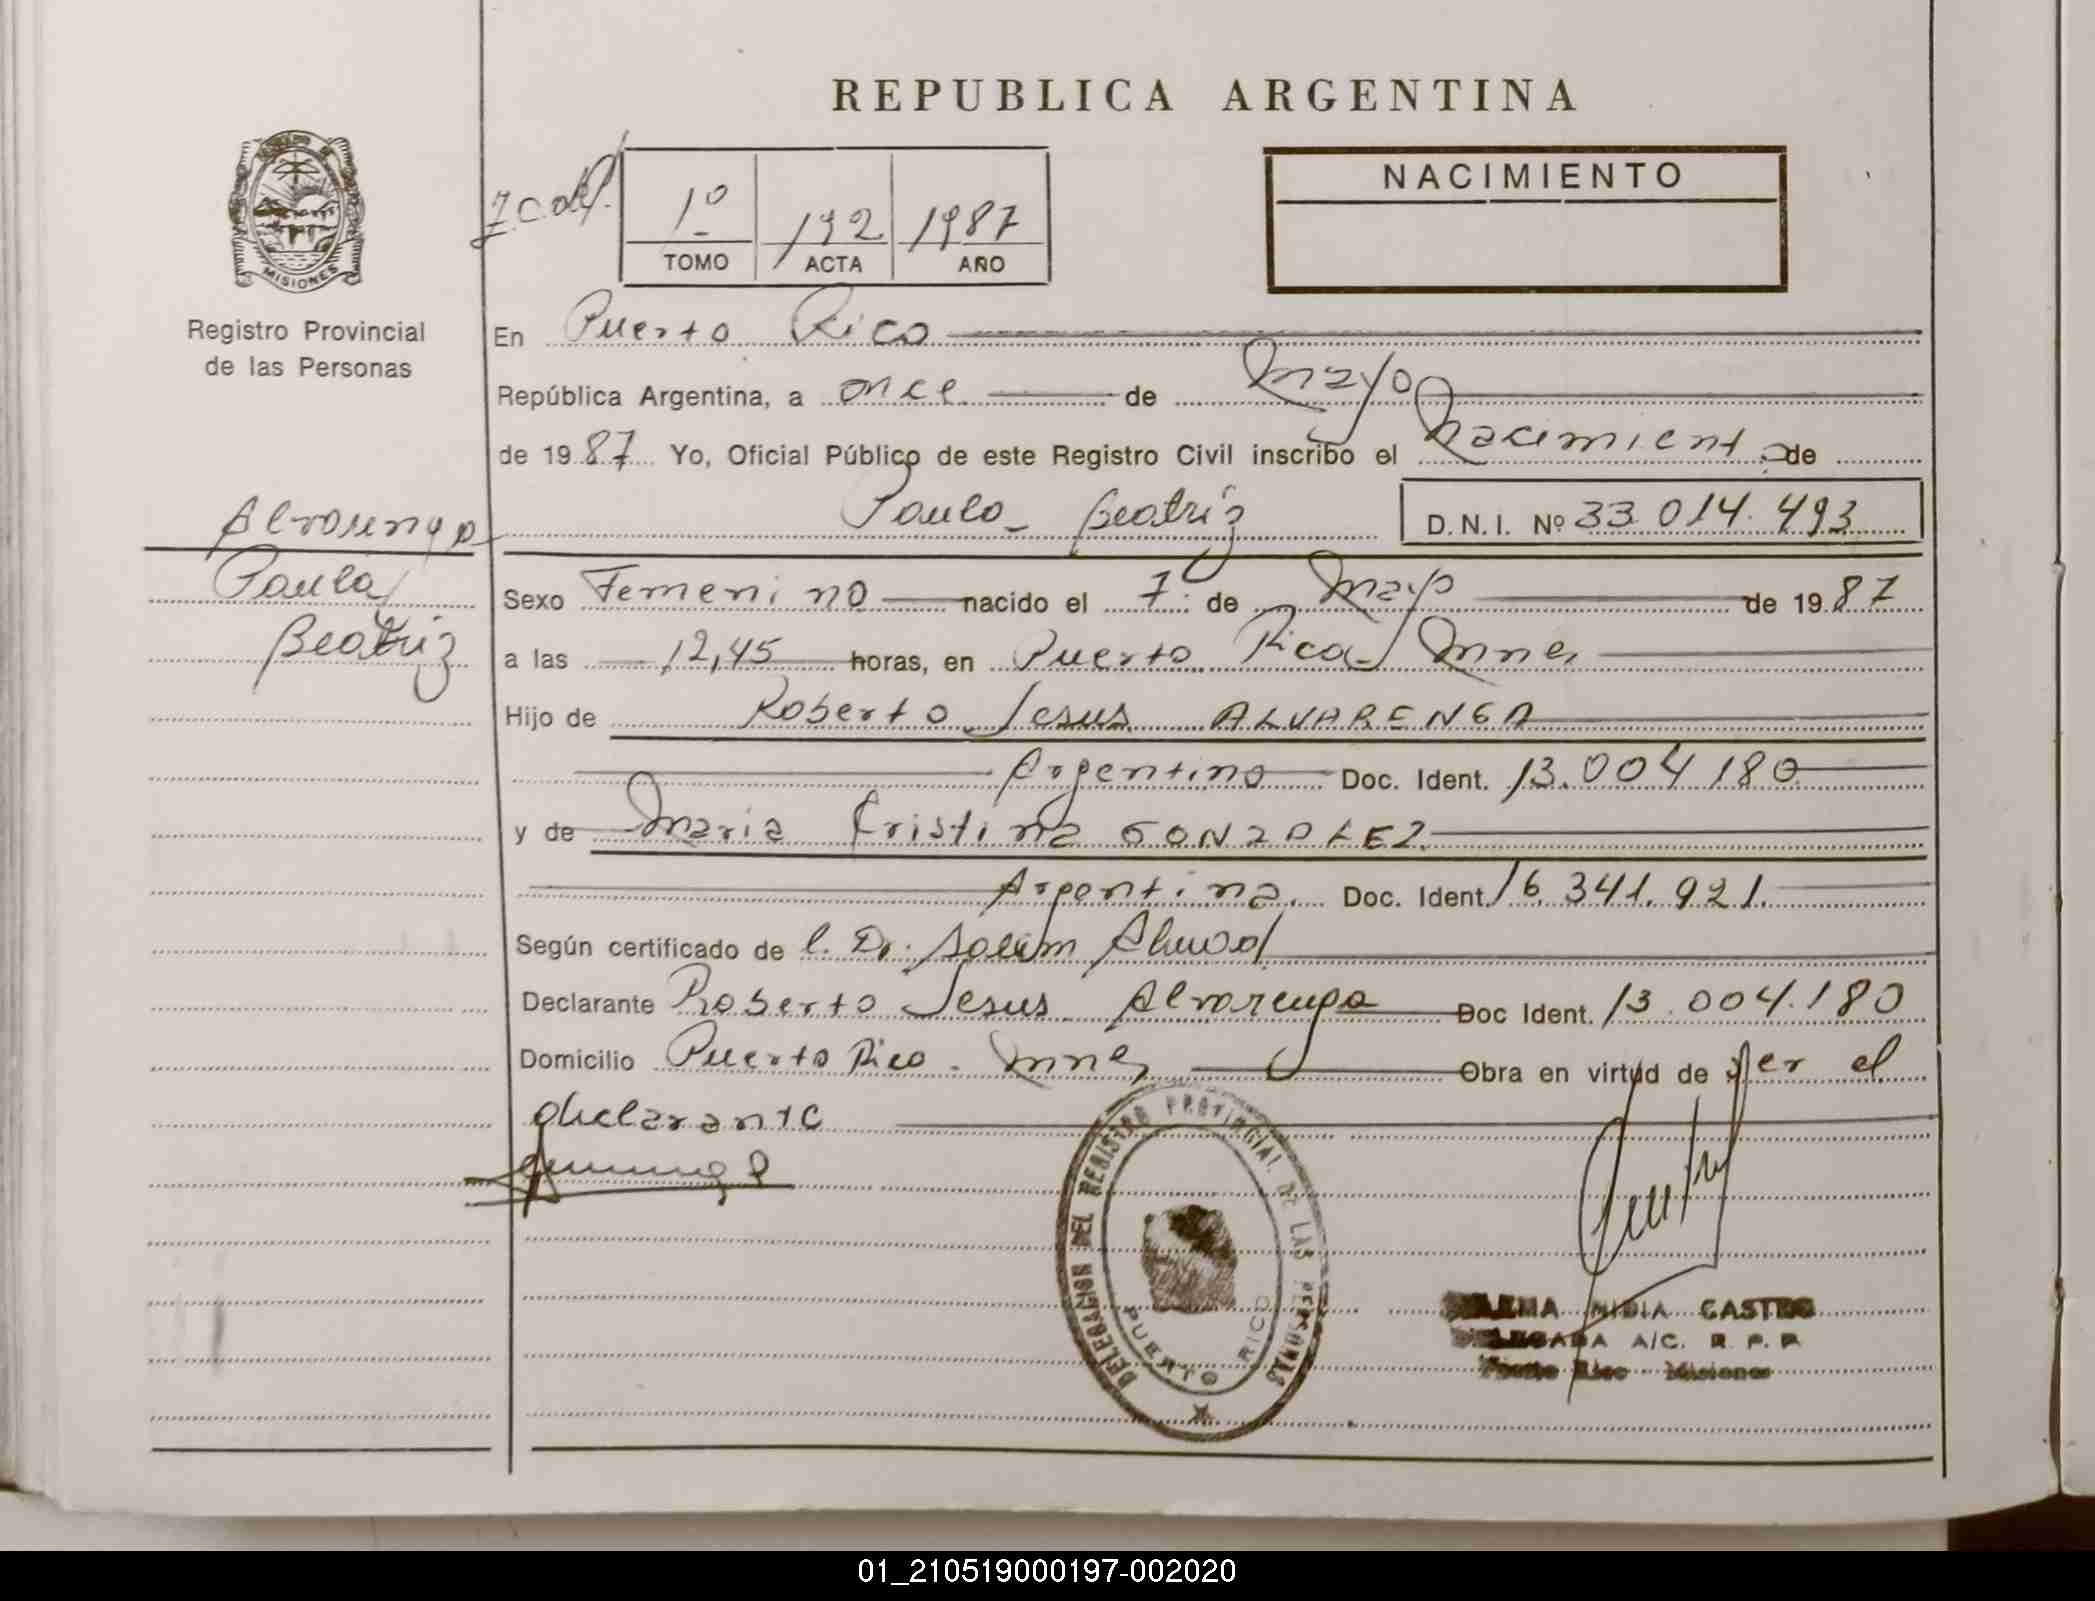 REPUBLICA ARGENTINA
MISIONES
Registro Provincial
de las Personas
1º 192 1987
TOMO ACTA AÑO
NACIMIENTO
En Puerto Rico
República Argentina, a once de Mayo
de 1987 Yo, Oficial Público de este Registro Civil inscribo el Nacimiento de
Paula Beatriz D.N.I. Nº 33.014.493
Alvarenga
Paula
Beatriz
Sexo Femenino nacido el 7 de Mayo de 1987
a las 12,45 horas, en Puerto Rico Mnes
Hijo de Roberto Jesus ALVARENGA
Argentino Doc. Ident. 13.004.180
y de Maria Kristina GONZALEZ
Argentina. Doc. Ident. 16.341.921.
Según certificado de l. Dr.
Declarante Roberto Jesus Alvarenga Doc Ident. 13.004.180
Domicilio Puerto Rico - Mnes Obra en virtud de ser el
declarante
DELEGACION DEL REGISTRO PROVINCIAL DE LAS PERSONAS
PUERTO RICO
NIDIA CASTRO
DELEGADA A/C. R. P. P.
Puerto Rico Misiones
01_210519000197-002020